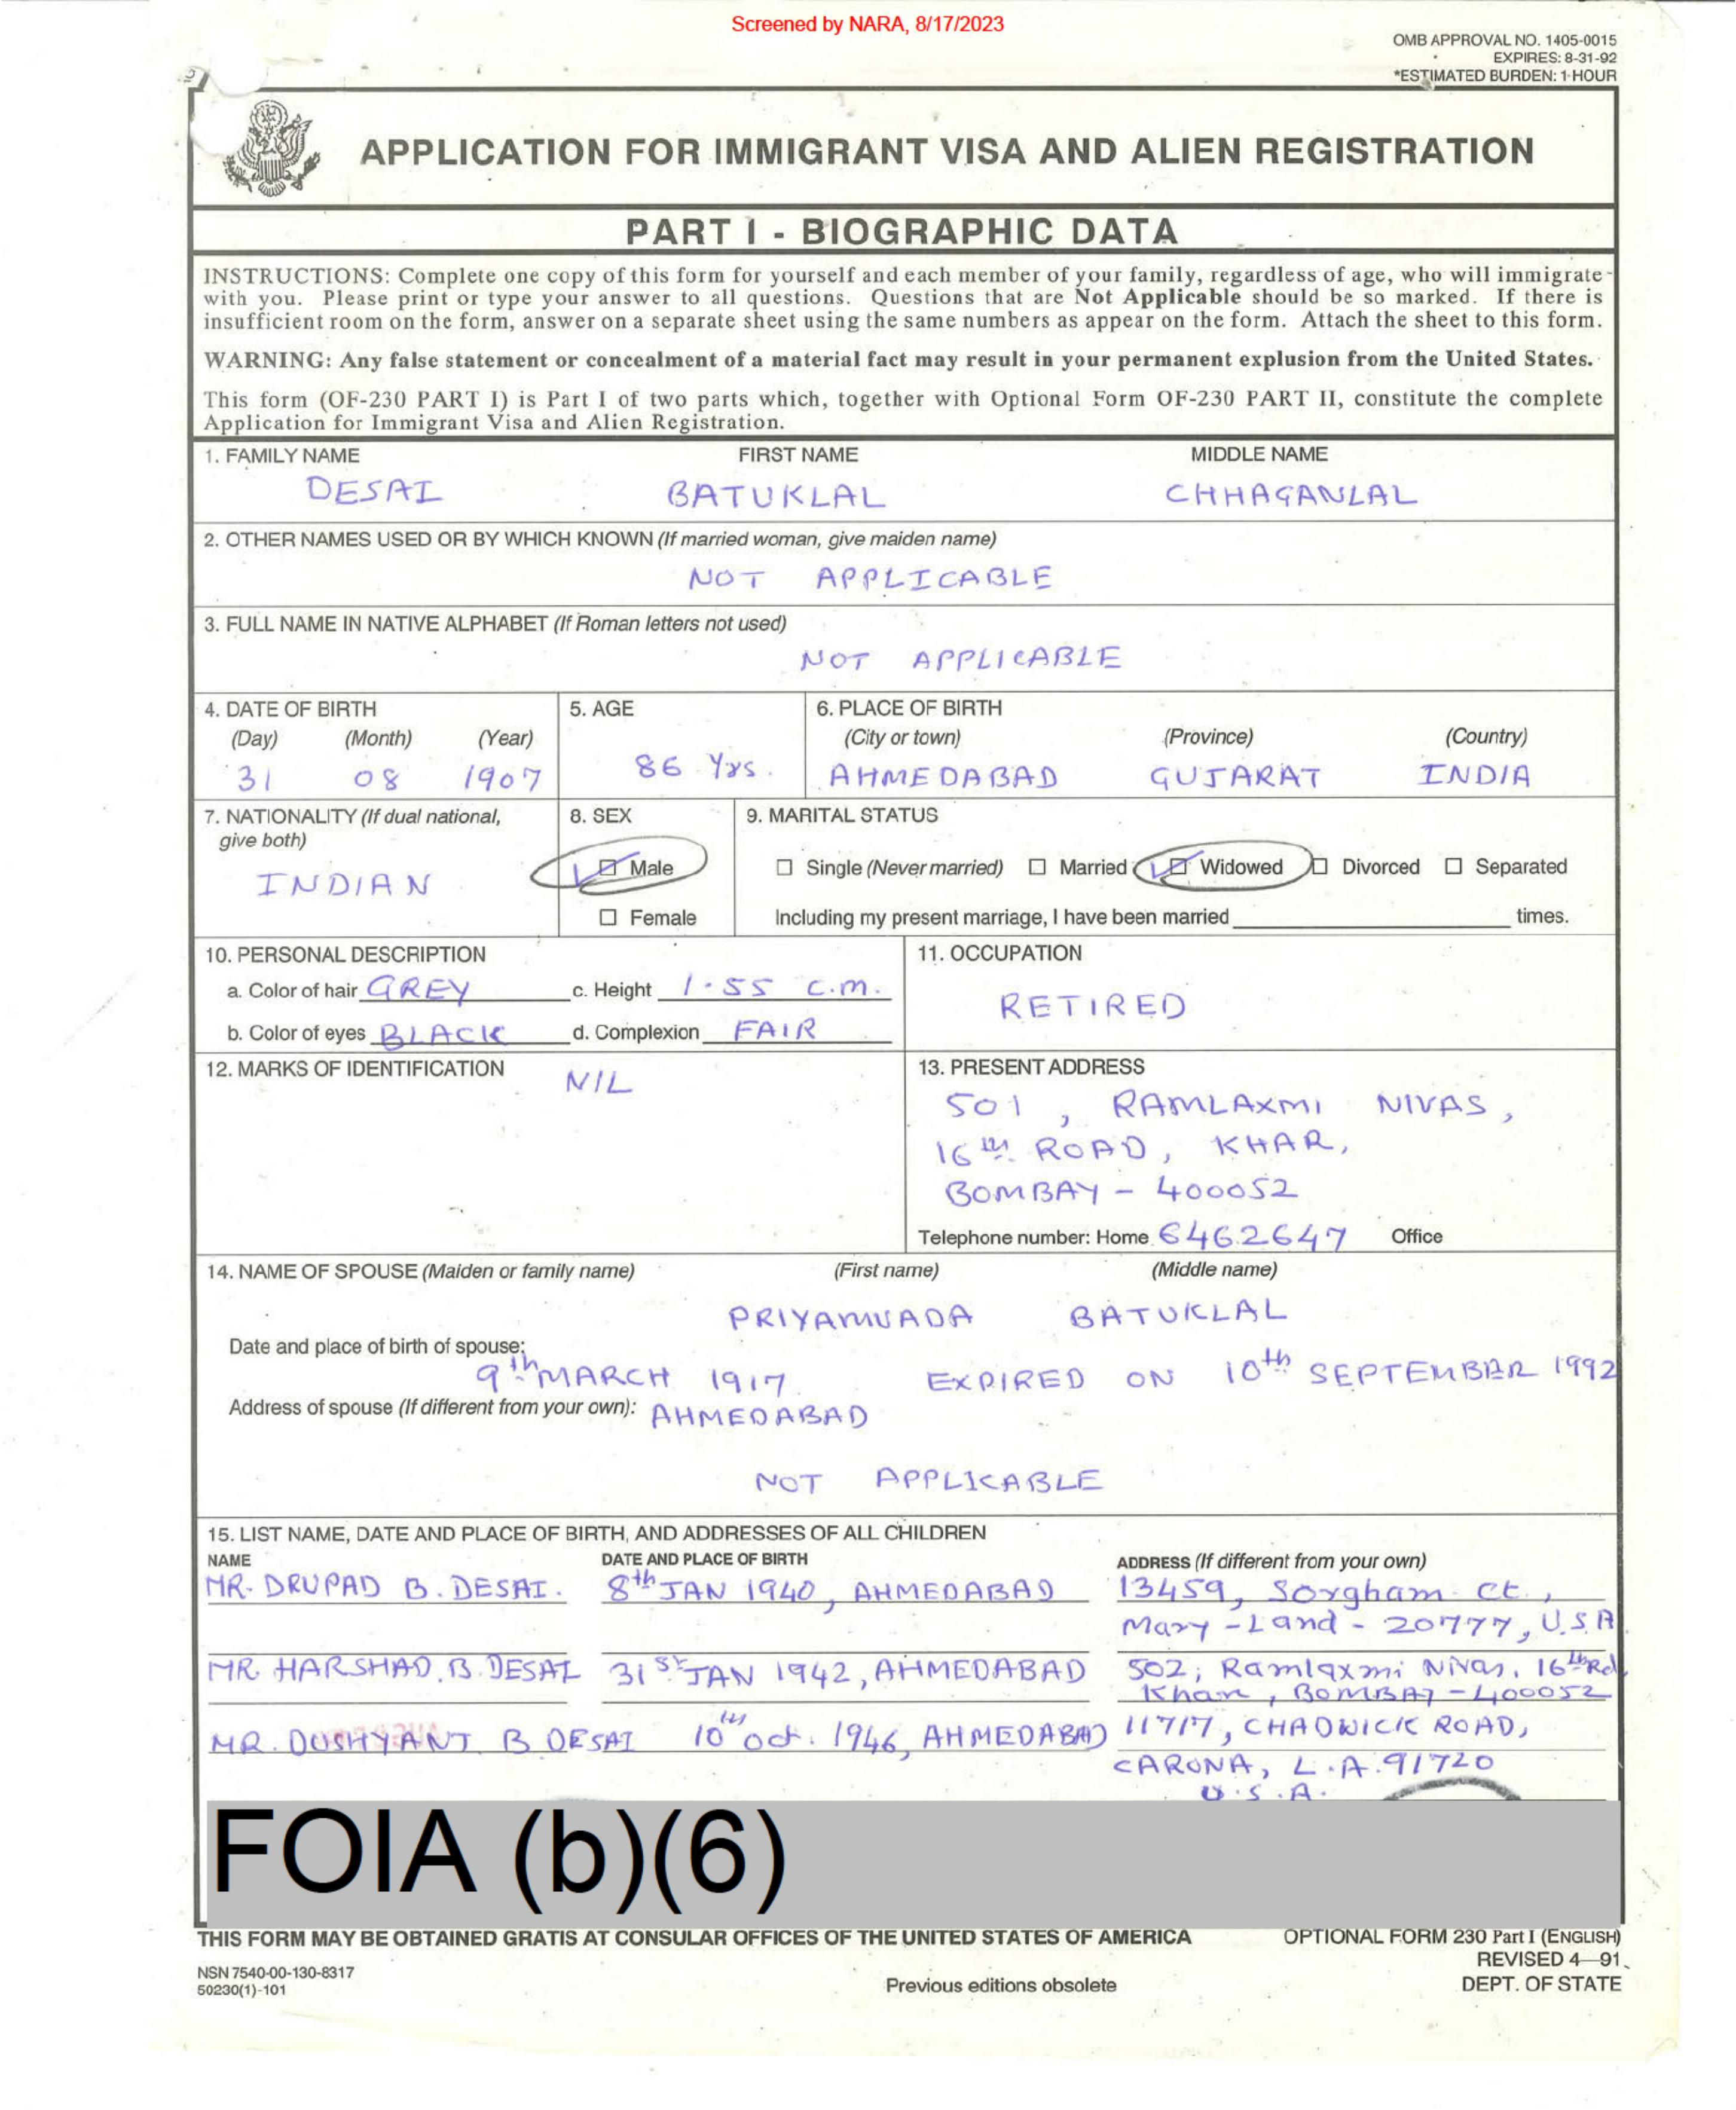 Screened by NARA, 8/17/2023
OMB APPROVAL NO. 1405-0015
EXPIRES: 8-31-92
*ESTIMATED BURDEN: 1 HOUR
APPLICATION FOR IMMIGRANT VISA AND ALIEN REGISTRATION
PART I - BIOGRAPHIC DATA
INSTRUCTIONS: Complete one copy of this form for yourself and each member of your family, regardless of age, who will immigrate
with you. Please print or type your answer to all questions. Questions that are Not Applicable should be so marked. If there is
insufficient room on the form, answer on a separate sheet using the same numbers as appear on the form. Attach the sheet to this form.
WARNING: Any false statement or concealment of a material fact may result in your permanent explusion from the United States.
This form (OF-230 PART I) is Part I of two parts which, together with Optional Form OF-230 PART II, constitute the complete
Application for Immigrant Visa and Alien Registration.
1. FAMILY NAME FIRST NAME MIDDLE NAME
DESAI BATUKLAL CHHAGANLAL
2. OTHER NAMES USED OR BY WHICH KNOWN (If married woman, give maiden name)
NOT APPLICABLE
3. FULL NAME IN NATIVE ALPHABET (If Roman letters not used)
NOT APPLICABLE
4. DATE OF BIRTH 5. AGE 6. PLACE OF BIRTH
(Day) (Month) (Year) (City or town) (Province) (Country)
31 08 1907 86 Yrs. AHMEDABAD GUJARAT INDIA
7. NATIONALITY (If dual national, 8. SEX 9. MARITAL STATUS
give both)
INDIAN Male Single (Never married) Married Widowed Divorced Separated
Female Including my present marriage, I have been married times.
10. PERSONAL DESCRIPTION 11. OCCUPATION
a. Color of hair GREY c. Height 1.55 C.M.
RETIRED
b. Color of eyes BLACK d. Complexion FAIR
12. MARKS OF IDENTIFICATION NIL 13. PRESENT ADDRESS
501, RAMLAXMI NIVAS,
16th ROAD, KHAR,
BOMBAY - 400052
Telephone number: Home 6462647 Office
14. NAME OF SPOUSE (Maiden or family name) (First name) (Middle name)
PRIYAMVADA BATUKLAL
Date and place of birth of spouse:
9th MARCH 1917 EXPIRED ON 10th SEPTEMBER 1992
Address of spouse (If different from your own): AHMEDABAD
NOT APPLICABLE
15. LIST NAME, DATE AND PLACE OF BIRTH, AND ADDRESSES OF ALL CHILDREN
NAME DATE AND PLACE OF BIRTH ADDRESS (If different from your own)
MR. DRUPAD B. DESAI. 8th JAN 1940, AHMEDABAD 13459, Sorgham Ct.,
Mary-Land - 20777, U.S.A
MR HARSHAD. B. DESAI 31st JAN 1942, AHMEDABAD 502, Ramlaxmi Nivas, 16th Rd
Khar, BOMBAY - 400052
MR. DUSHYANT B DESAI 10th Oct. 1946, AHMEDABAD 11717, CHADWICK ROAD,
CARONA, L.A. 91720
U.S.A.
FOIA (b)(6)
THIS FORM MAY BE OBTAINED GRATIS AT CONSULAR OFFICES OF THE UNITED STATES OF AMERICA OPTIONAL FORM 230 Part I (ENGLISH)
REVISED 4-91
NSN 7540-00-130-8317
50230(1)-101 Previous editions obsolete DEPT. OF STATE